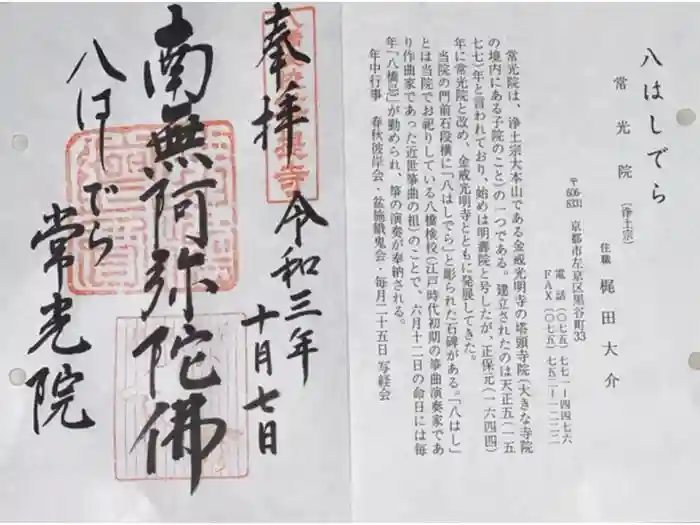 八はしでら
常光院(浄土宗)
住職 梶田大介
〒606-8331 京都市左京区黒谷町33
電話(〇七五)七七一―四四七六
FAX(〇七五)七五二―一二二二
常光院は、浄土宗大本山である金戒光明寺の塔頭寺院(大きな寺院
の境内にある子院のこと)の一つである。建立されたのは天正五(一五
七七)年と言われており、始めは明壽院と号したが、正保元(一六四四)
年に常光院と改め、金戒光明寺とともに発展してきた。
当院の門前石段横に「八はしでら」と彫られた石碑がある。「八はし」
とは当院でお祀りしている八橋検校(江戸時代初期の箏曲演奏家であ
り作曲家であった近世箏曲の祖)のことで、六月十二日の命日には毎
年「八橋忌」が勤められ、箏の演奏が奉納される。
年中行事 春秋彼岸会・盆施餓鬼会・毎月二十五日 写経会
奉拝 令和三年
十月七日
南無阿弥陀佛
八はしでら
常光院